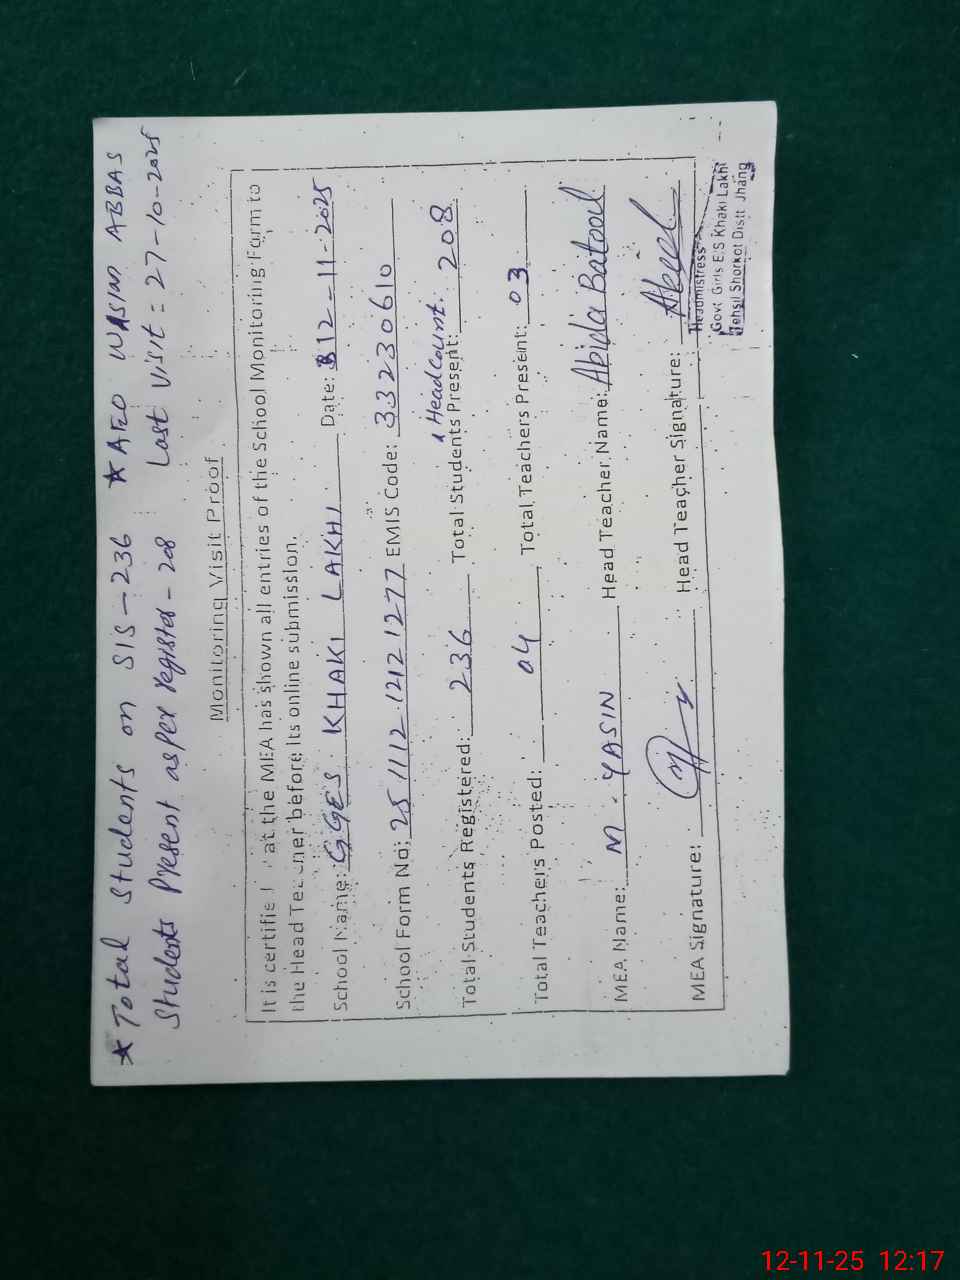 ★ Total Students on SIS - 236 ★ AEO WASIM ABBAS
Students Present as per register - 208 Last Visit = 27-10-2025
Monitoring Visit Proof
It is certified at the MEA has shown all entries of the School Monitoring Form to
the Head Teacher before its online submission.
School Name: GGES KHAKI LAKHI Date: 12-11-2025
School Form No: 25 1112 1212 1277 EMIS Code: 33230610
Headcount.
Total Students Registered: 236 Total Students Present: 208
Total Teachers Posted: 04 Total Teachers Present: 03
MEA Name: M. YASIN Head Teacher Name: Abida Batool
MEA Signature: Head Teacher Signature:
Headmistress
Govt Girls E/S Khaki Lakhi
Tehsil Shorkot Distt Jhang
12-11-25 12:17